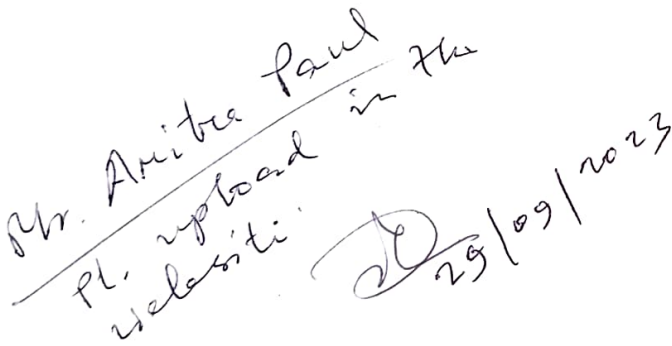 Mr. Aritra Paul
Pl. upload in the
website.
29/09/2023